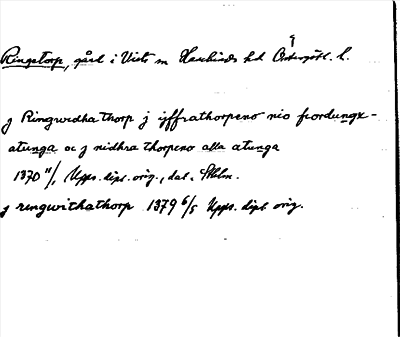 Ringstorp, gård i Vists sn Hanekinds hd Östergötl. l.
j Ringwidha thorp j yffrathorpeno nio fiordungx-
atunga oc j nidhra thorpeno alla atunga
1370 11/1 Upps. dipl. orig., dat. Sthlm.
j ringwithathorp 1379 6/5 Upps. dipl. orig.